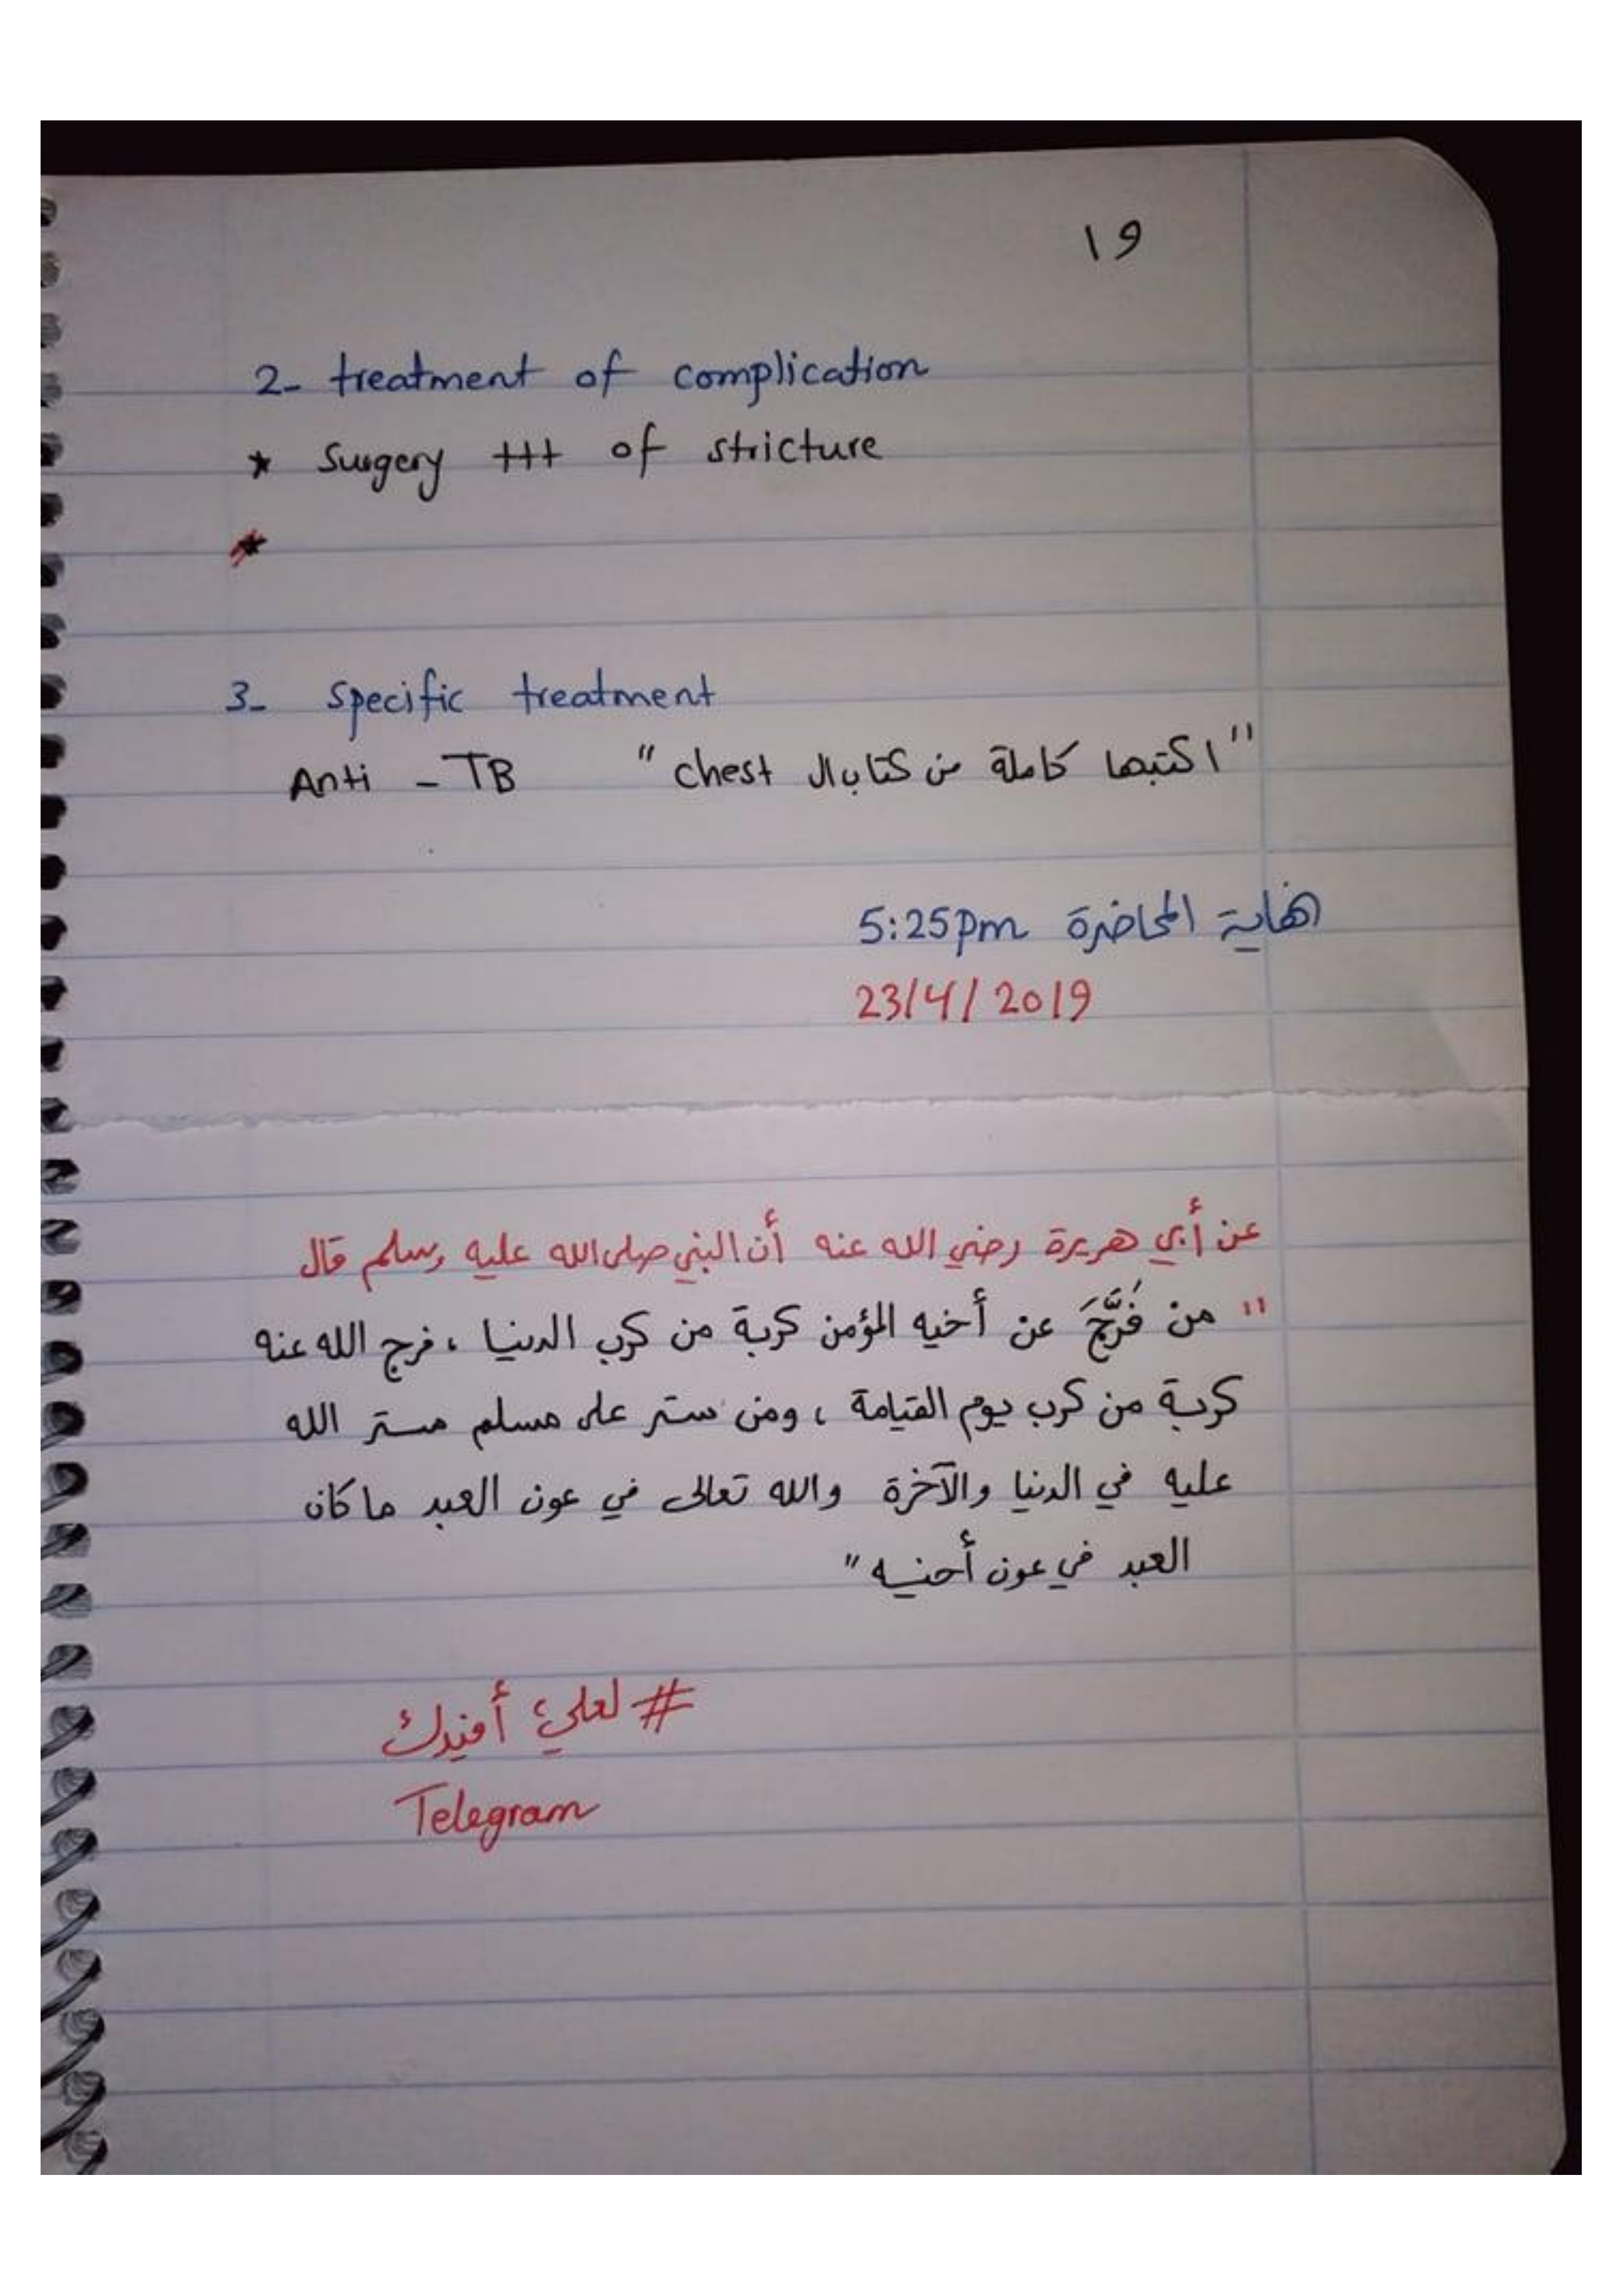 ١٩
2- treatment of complication
* Surgery +++ of stricture
*
3- Specific treatment
Anti - TB "اكتبها كاملة من كتاب ال chest"
نهاية المحاضرة 5:25pm
23/4/2019
عن أبي هريرة رضي الله عنه أن النبي صلى الله عليه وسلم قال
" من فَرَّجَ عن أخيه المؤمن كربة من كرب الدنيا ، فرج الله عنه
كربة من كرب يوم القيامة ، ومن ستر على مسلم ستر الله
عليه في الدنيا والآخرة والله تعالى في عون العبد ما كان
العبد في عون أخيه "
# لعلي أفيدك
Telegram